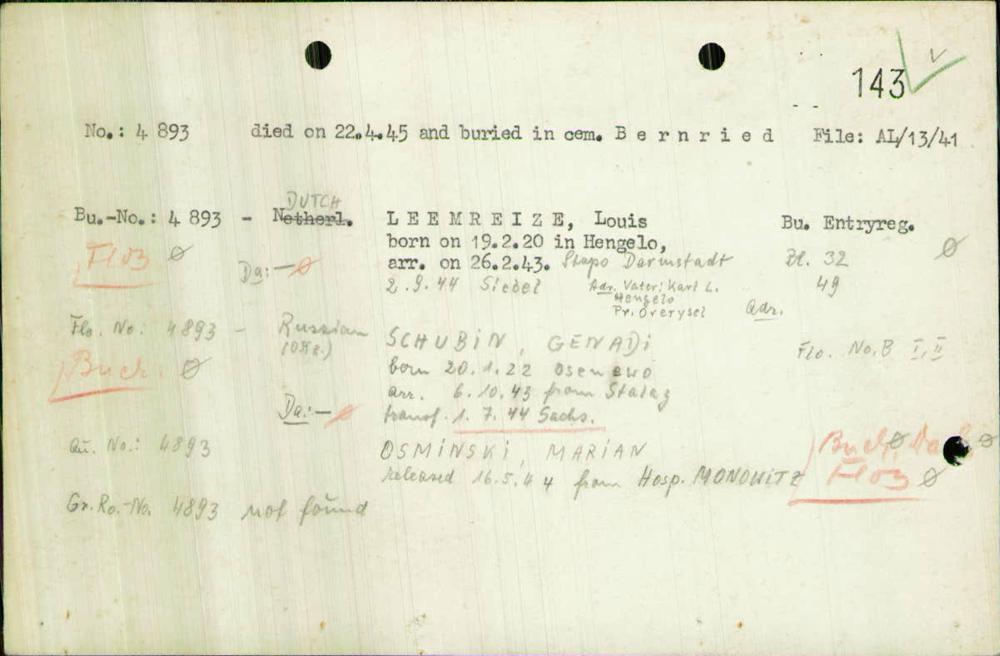 143
No.: 4 893 died on 22.4.45 and buried in cem. B e r n r i e d File: AL/13/41
DUTCH
Bu.-No.: 4 893 - Netherl. L E E M R E I Z E, Louis Bu. Entryreg.
born on 19.2.20 in Hengelo,
Floß Ø Da: - Ø arr. on 26.2.43. Stapo Darmstadt Bl. 32 Ø
2.9.44 Siebel Adr. Vater: Karl L. 49
Hengelo
Pr. Overysel Adr.
Flo. No: 4893 - Russian SCHUBIN, GENADi Flo. No. B I, II
Buch. Ø born 20.1.22
arr. 6.10.43 from Stalag
Da: - transf. 1.7.44 Sachs.
Au. No.: 4893 OSMiNSKi, MARiAN Buch Ø, Da Ø
released 16.5.44 from Hosp. MONOWiTZ Floß Ø
Gr.Ro.-No. 4893 not found